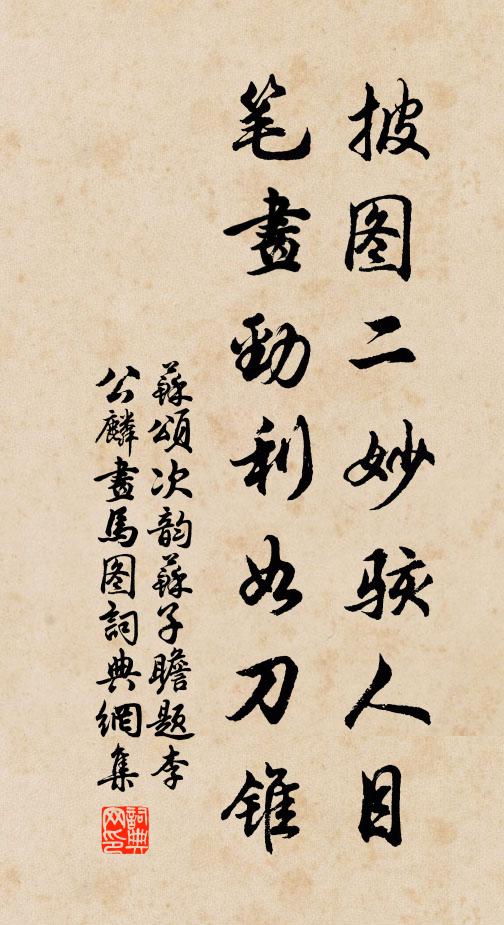 披图二妙骇人目
笔畫勁利如刀锥
蘇頌次韵蘇子瞻题李
公麟畫馬图詞典網集
詞典网印